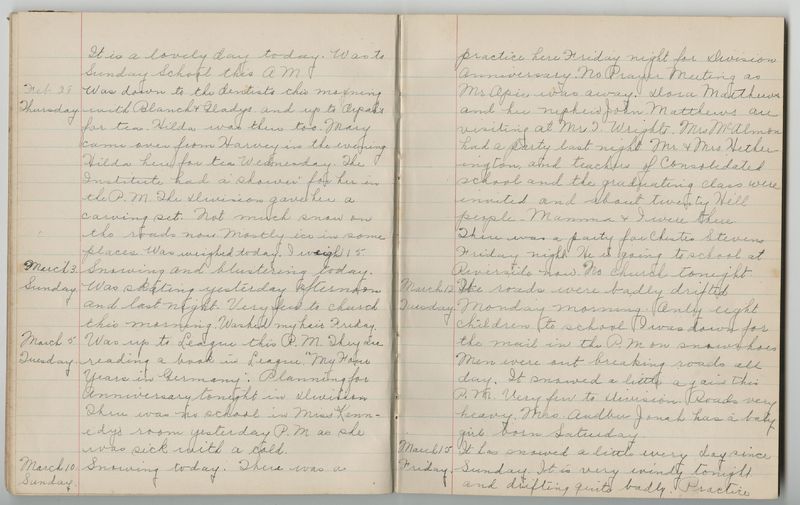 It is a lovely day today. Was to
Sunday School this A M.
Feb. 28 Was down to the dentists this morning
Thursday with Blanch & Gladys and up to
for tea. Hilda was there too. Mary
came over from Harvey in the evening
Hilda here for tea Wednesday. The
Institute had a shower for her in
the P.M. The Division gave her a
carving set. Not much snow on
the roads now Mostly ice in some
places. Was weighed today. I weigh 115
March 3 Snowing and blustering today.
Sunday Was skating yesterday afternoon
and last night. Very few to church
this morning. Washed my hair Friday.
March 5 Was up to League this P.M. They are
Tuesday reading a book in League "My Four
Years in Germany". Planning for
Anniversary tonight in Division
There was no school in Miss Kenn-
edy's room yesterday P.M as she
was sick with a cold.
March 10 Snowing today. There was a
Sunday.
practice here Friday night for Division
Anniversary. No Prayer Meeting as
Mr Apie was away. Dora Matthews
and her nephew John Matthews are
visiting at Mrs I. Wrights. Mrs McAlmon
had a party last night Mr & Mrs Hether-
ington, and teachers of Consolidated
school and the graduating class were
invited and about twenty Hill
people. Mamma & I were there
There was a party for Chester Stevens
Friday night. He is going to school at
Riverside now. No church tonight
March 12 The roads were badly drifted
Tuesday Monday morning. Only eight
children to school I was down for
the mail in the P.M on snowshoes
Men were out breaking roads all
day. It snowed a little again this
P.M. Very few to Division. Roads very
heavy. Mrs. Jonah has a baby
girl born Saturday
March 15 It has snowed a little every day since
Friday. Sunday. It is very windy tonight
and drifting quite badly. Practice